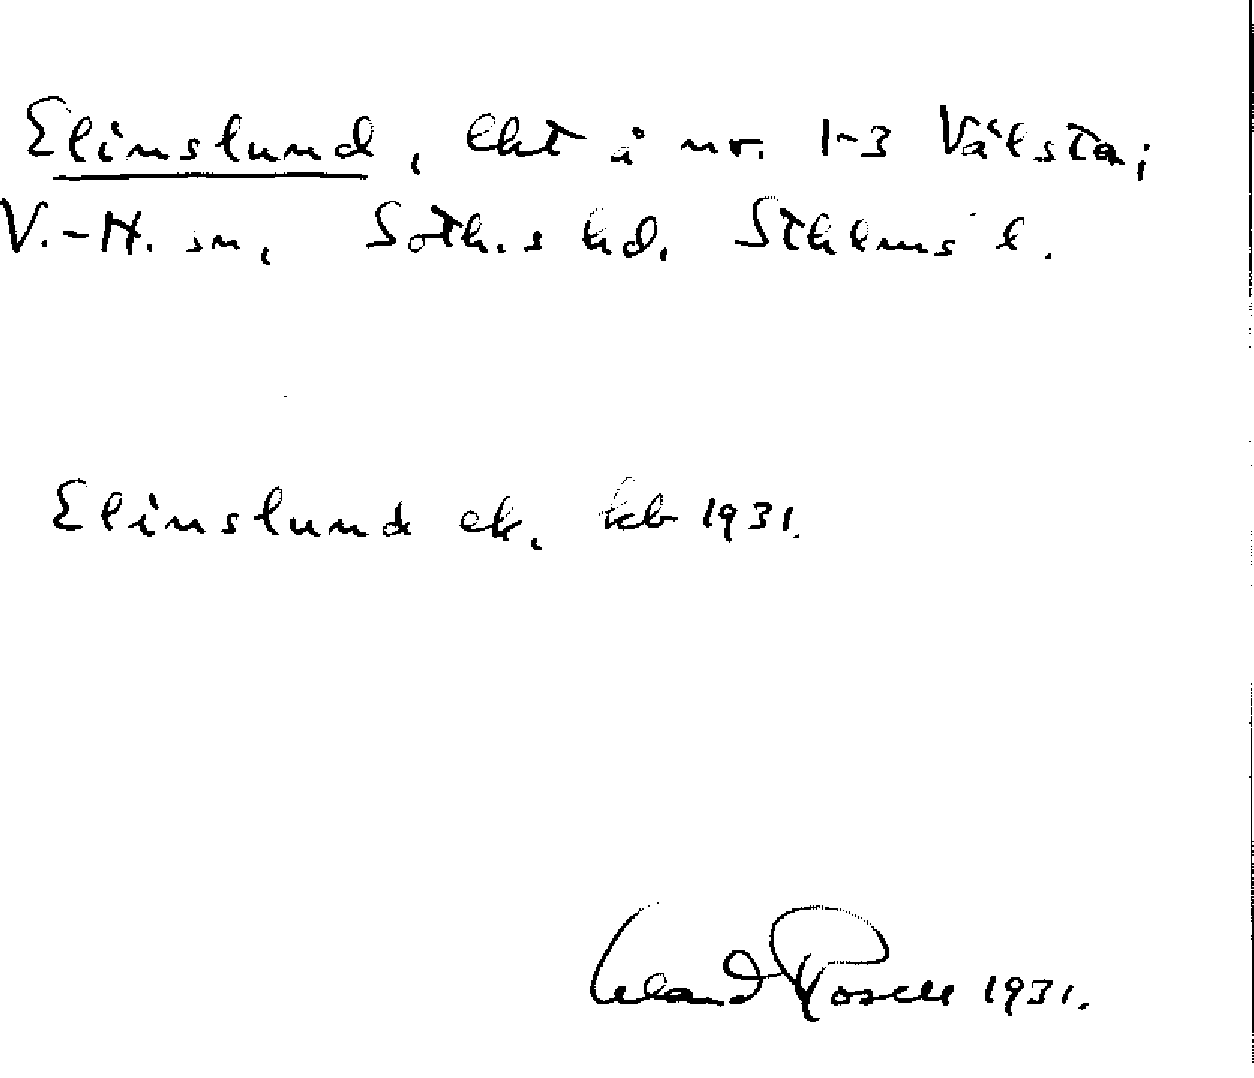 Elinslund, lht å nr. 1-3 Välsta,
V.-H. sn, Soth.s hd. Sthlms l.
Elinslund ek. kb 1931.
Erland Rosell 1931.